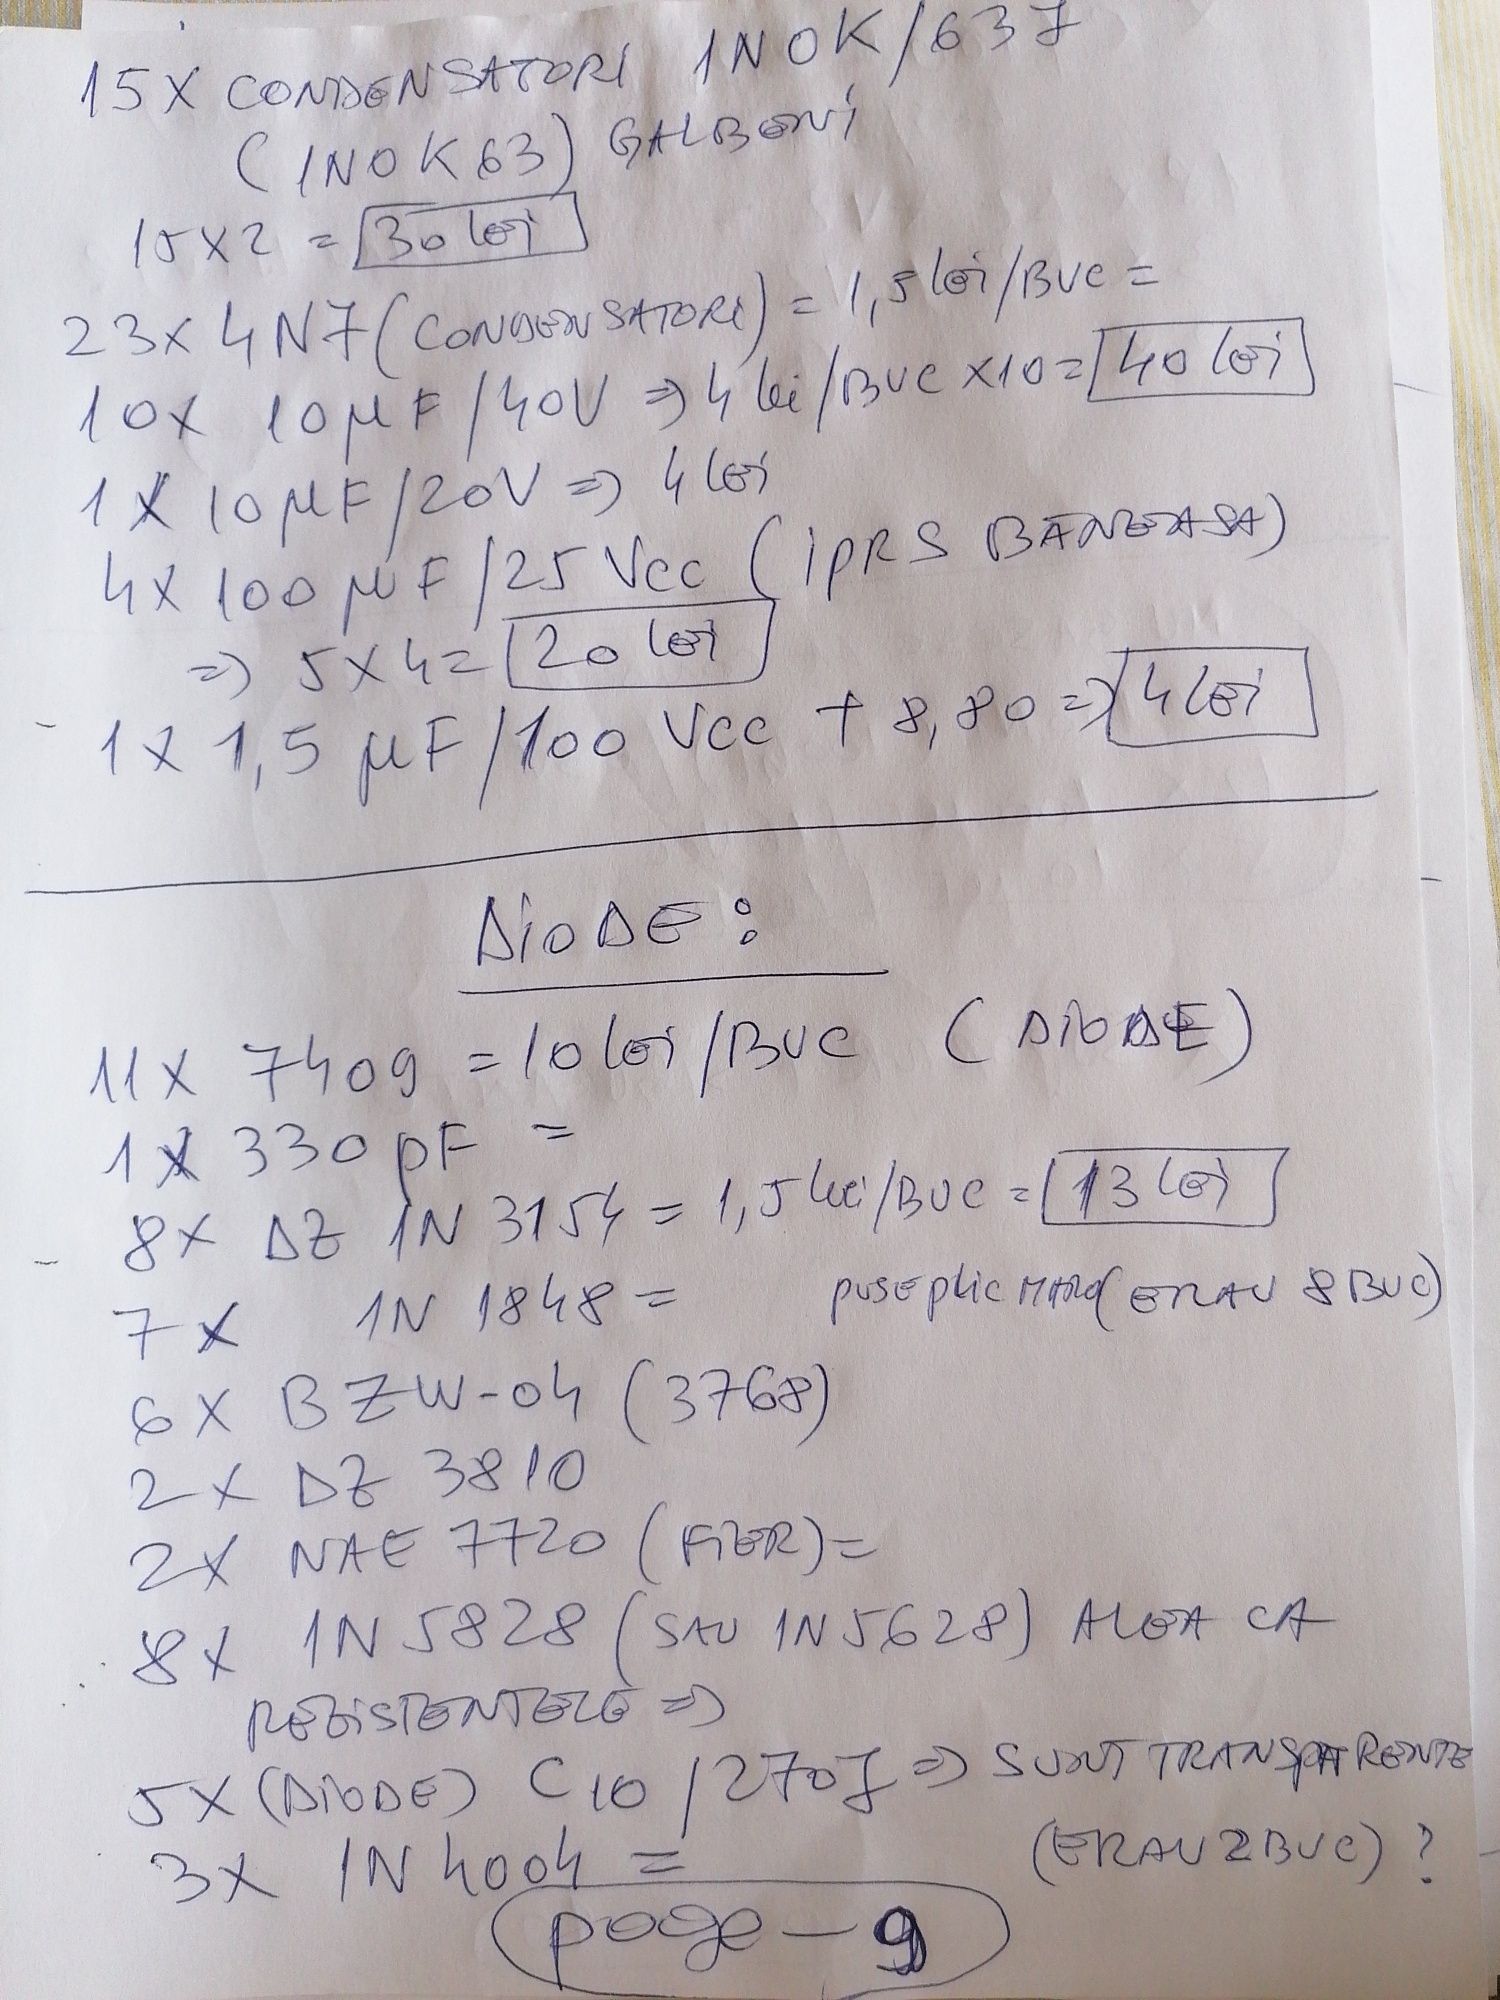 15X CONDENSATORI 1N0K/63J
(1N0K63) GALBENI
15X2 = 30 lei
23X 4N7 (CONDENSATORI) = 1,5 lei/BUC =
10X 10µF/40V => 4 lei/BUC X10 = 40 lei
1X 10µF/20V => 4 lei
4X 100µF/25 Vcc (IPRS BĂNEASA)
=> 5X4 = 20 lei
1X 1,5µF/100 Vcc + 8,80 => 4 lei
DIODE:
11X 7409 = 10 lei/BUC (DIODE)
1X 330pF =
8X DZ 1N 3154 = 1,5 lei/BUC = 13 lei
7X 1N 1848 = PUSE PLIC MARO (ERAU 8 BUC)
6X BZW-04 (3768)
2X DZ 3810
2X NAE 7720 (FIER) =
8X 1N 5828 (SAU 1N5628) ALEA CA
REZISTENTELE =>
5X (DIODE) C10/270J => SUNT TRANSPARENTE
3X 1N 4004 = (ERAU 2 BUC) ?
page - 9